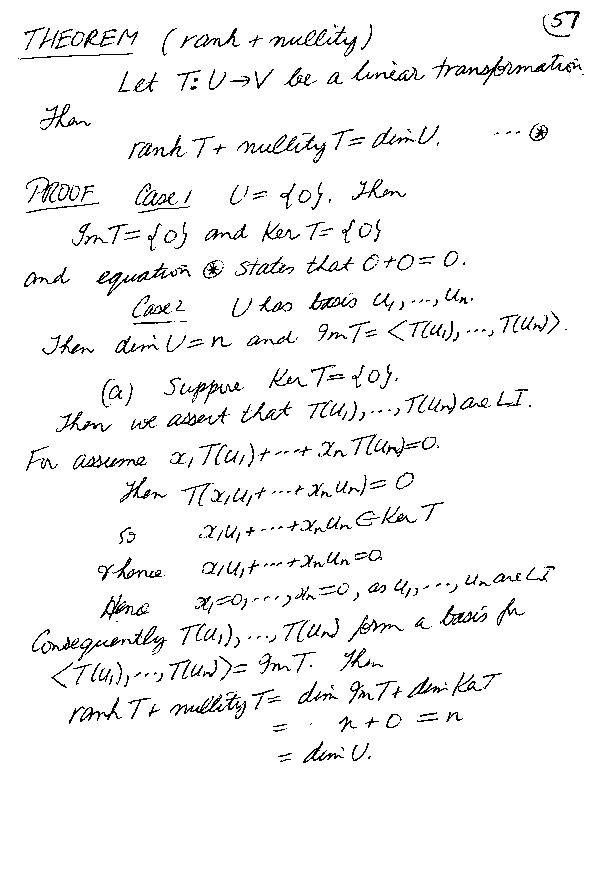 57
THEOREM (rank + nullity)
Let T: U→V be a linear transformation.
Then
rank T + nullity T = dim U. ... ⊛
PROOF Case 1 U = {0}. Then
Im T = {0} and Ker T = {0}
and equation ⊛ states that 0+0=0.
Case 2 U has basis u₁, ..., uₙ.
Then dim U = n and Im T = <T(u₁), ..., T(uₙ)>.
(a) Suppose Ker T = {0}.
Then we assert that T(u₁), ..., T(uₙ) are LI.
For assume x₁T(u₁) + ... + xₙT(uₙ) = 0.
Then T(x₁u₁ + ... + xₙuₙ) = 0
so x₁u₁ + ... + xₙuₙ ∈ Ker T
whence x₁u₁ + ... + xₙuₙ = 0.
Hence x₁=0, ..., xₙ=0, as u₁, ..., uₙ are LI
Consequently T(u₁), ..., T(uₙ) form a basis for
<T(u₁), ..., T(uₙ)> = Im T. Then
rank T + nullity T = dim Im T + dim Ker T
= n + 0 = n
= dim U.